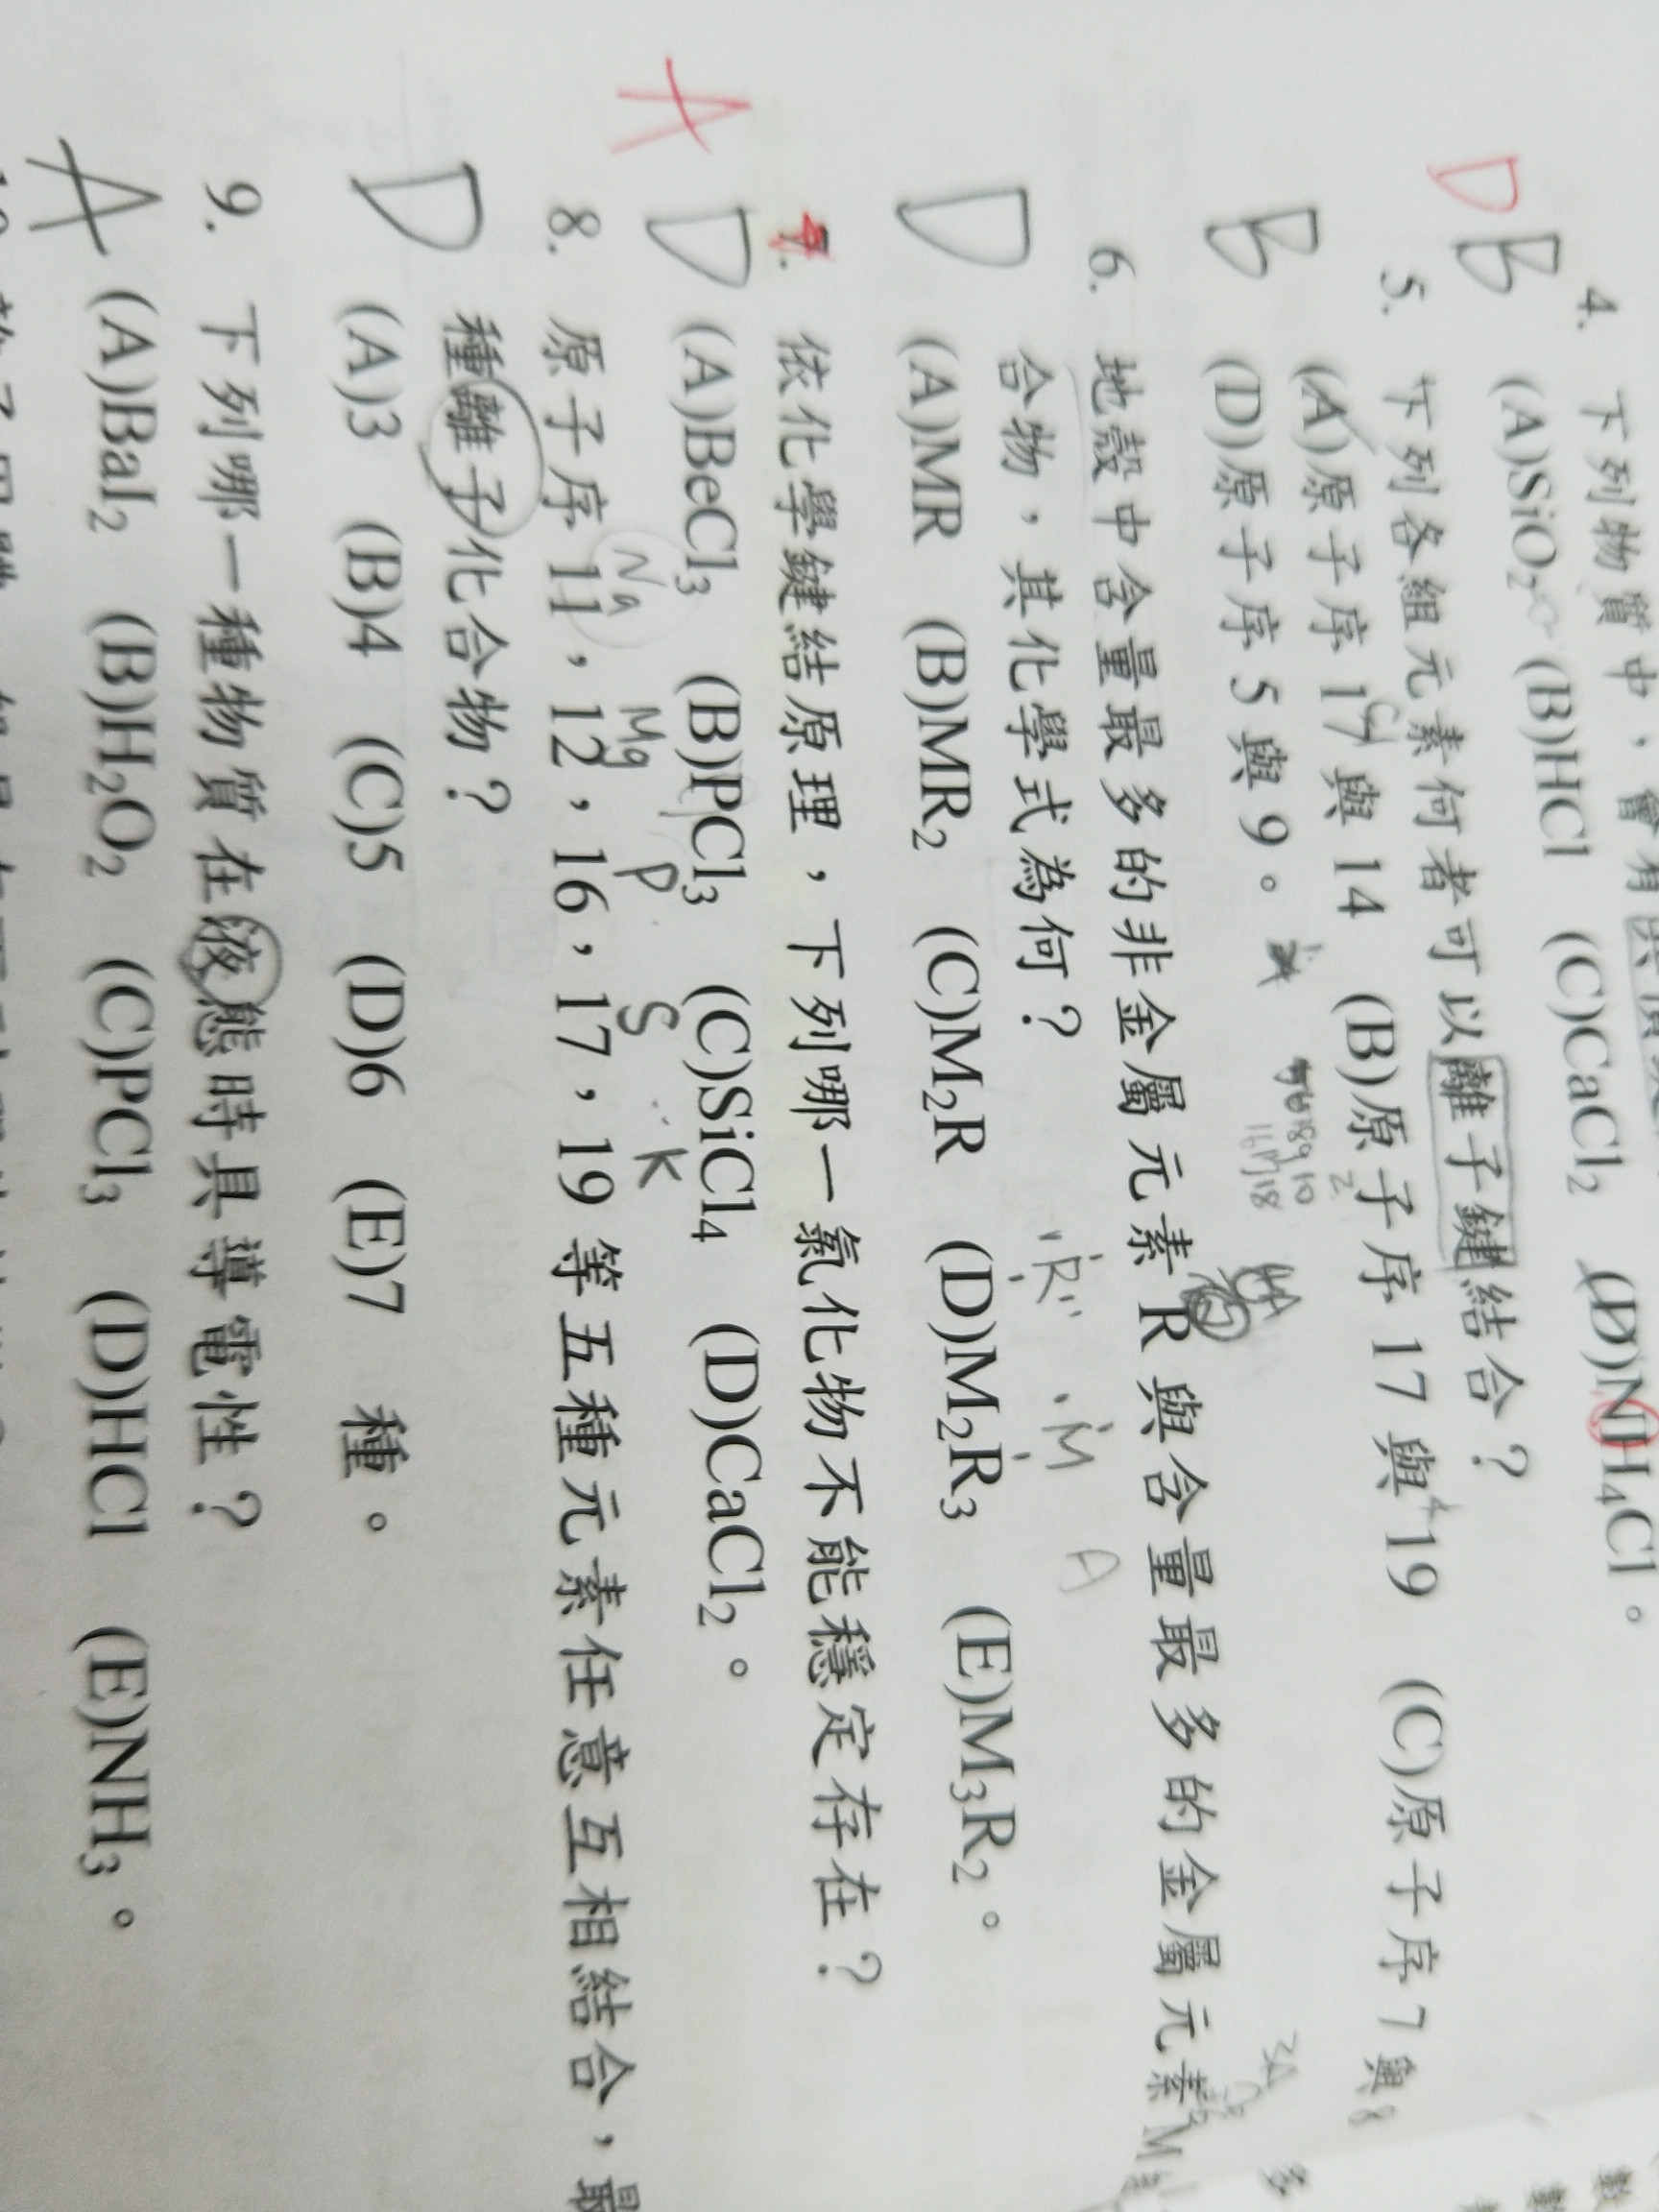 4. 下列物質中，會有
D B (A)SiO₂ (B)HCl (C)CaCl₂ (D)NH₄Cl。
5. 下列各組元素何者可以離子鍵結合？
B (A)原子序 17 與 14 (B)原子序 17 與 19 (C)原子序 7 與 8
(D)原子序 5 與 9。
6. 地殼中含量最多的非金屬元素 R 與含量最多的金屬元素 M
合物，其化學式為何？
D (A)MR (B)MR₂ (C)M₂R (D)M₂R₃ (E)M₃R₂。
7. 依化學鍵結原理，下列哪一氯化物不能穩定存在？
A D (A)BeCl₃ (B)PCl₃ (C)SiCl₄ (D)CaCl₂。
Na Mg P S K
8. 原子序 11，12，16，17，19 等五種元素任意互相結合，最
種離子化合物？
D (A)3 (B)4 (C)5 (D)6 (E)7 種。
9. 下列哪一種物質在液態時具導電性？
A (A)BaI₂ (B)H₂O₂ (C)PCl₃ (D)HCl (E)NH₃。